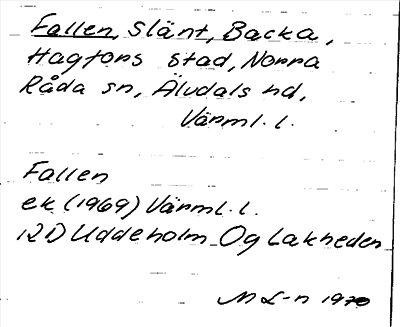 Fallen, slänt, Backa,
Hagfors stad, Norra
Råda sn, Älvdals hd,
Värml. l.
Fallen
ek (1969) Värml. l.
12D Uddeholm Og Lakheden
M L-n 1970